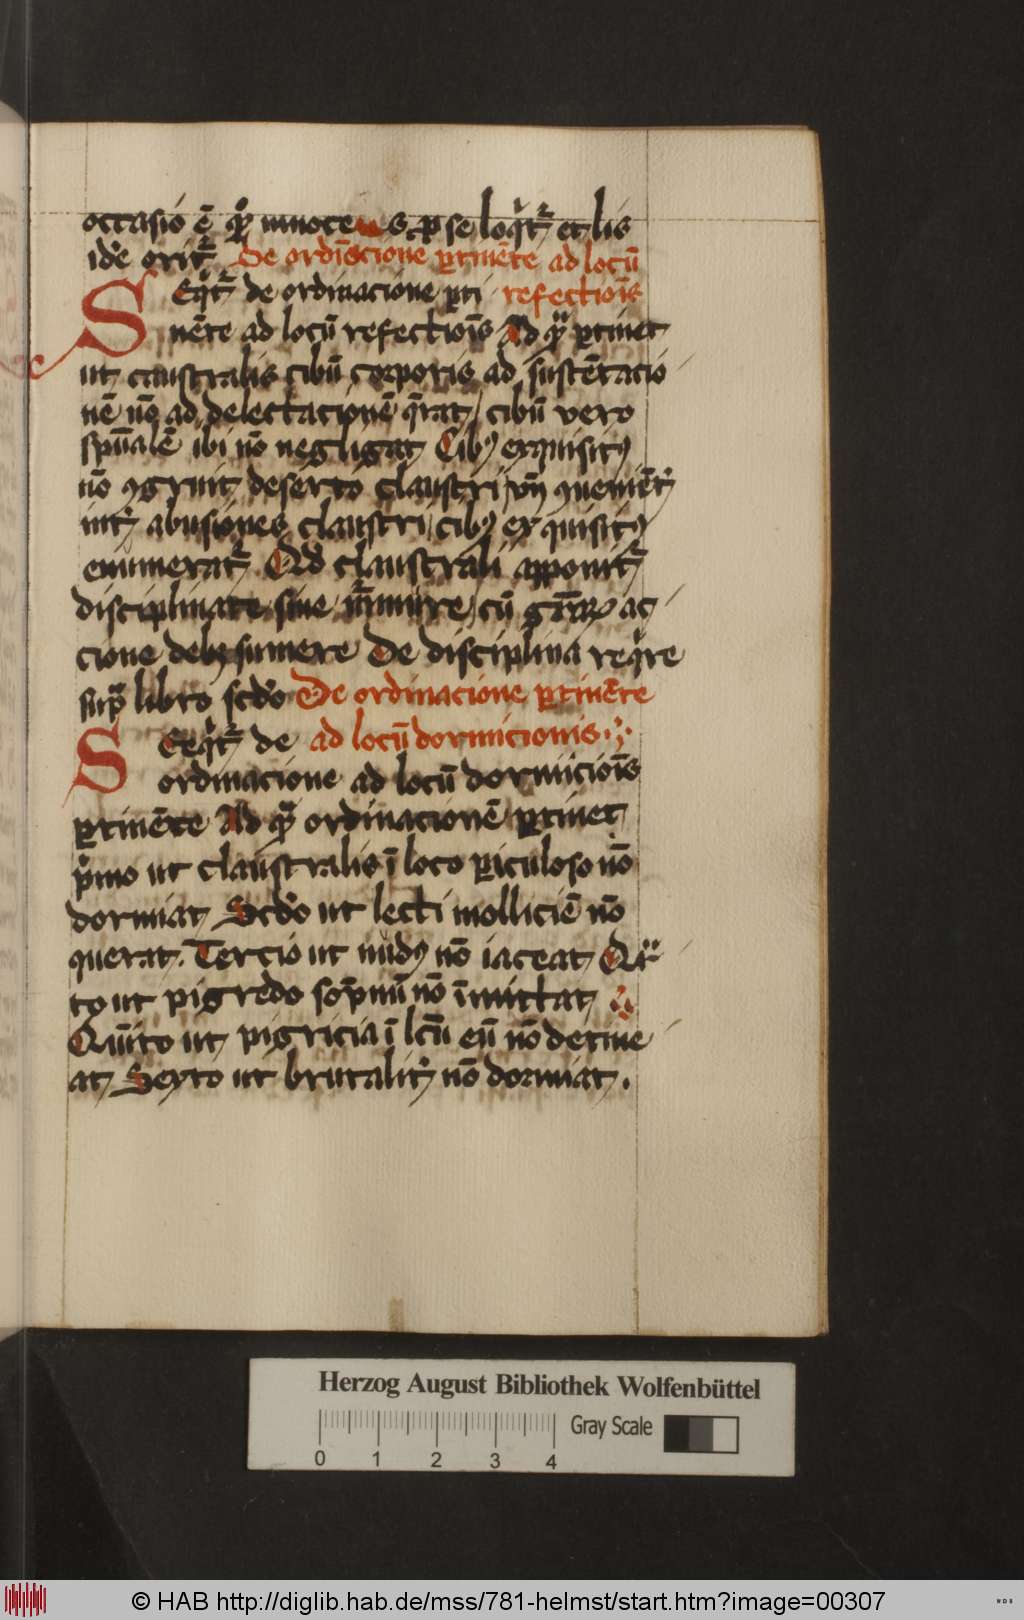 occasio ē qn̄ innocens p se loqͥtr̄ et lis
ide orit᷑ De ordinacione ꝑtinēte ad locū
Seqͥtr̄ de ordinacione ꝑti refectiōis
nēte ad locū refectiōis Ad qᷓ ꝑtinet
ut claustralis cibū corporis ad sustētacio
nē nō ad delectacionē q̄rat / cibū vero
spūalē ibi nō negligat Cibꝰ exquisitꝰ
nō ꝯgruit deserto claustri
int̾ abusiones claustri cibꝰ exquisitꝰ
enumerat᷑ Qd̾ claustrali apponit᷑
disciplinate sine m̄mure cū gr̄aꝝ ac
cione debꝫ sumere De disciplina reqͥre
supᷓ libro scd̾o De ordinacione ꝑtinēte
Seqͥtr̄ de ad locū dormicionis
ordinacione ad locū dormiciōis
ꝑtinēte Ad qᷓ ordinacionē ꝑtinet
pͥmo ut claustralis ī loco ꝑiculoso nō
dormiat Scd̾o ut lecti molliciē nō
querat. Tercio ut nudꝰ nō iaceat Qᷓr
to ut pigredo sōpnū nō īmittat
Quīto ut pigricia ī lc̄m eū nō detine
at Sexto ut brutalit̾ nō dormiat.
Herzog August Bibliothek Wolfenbüttel
0 1 2 3 4
Gray Scale
© HAB http://diglib.hab.de/mss/781-helmst/start.htm?image=00307